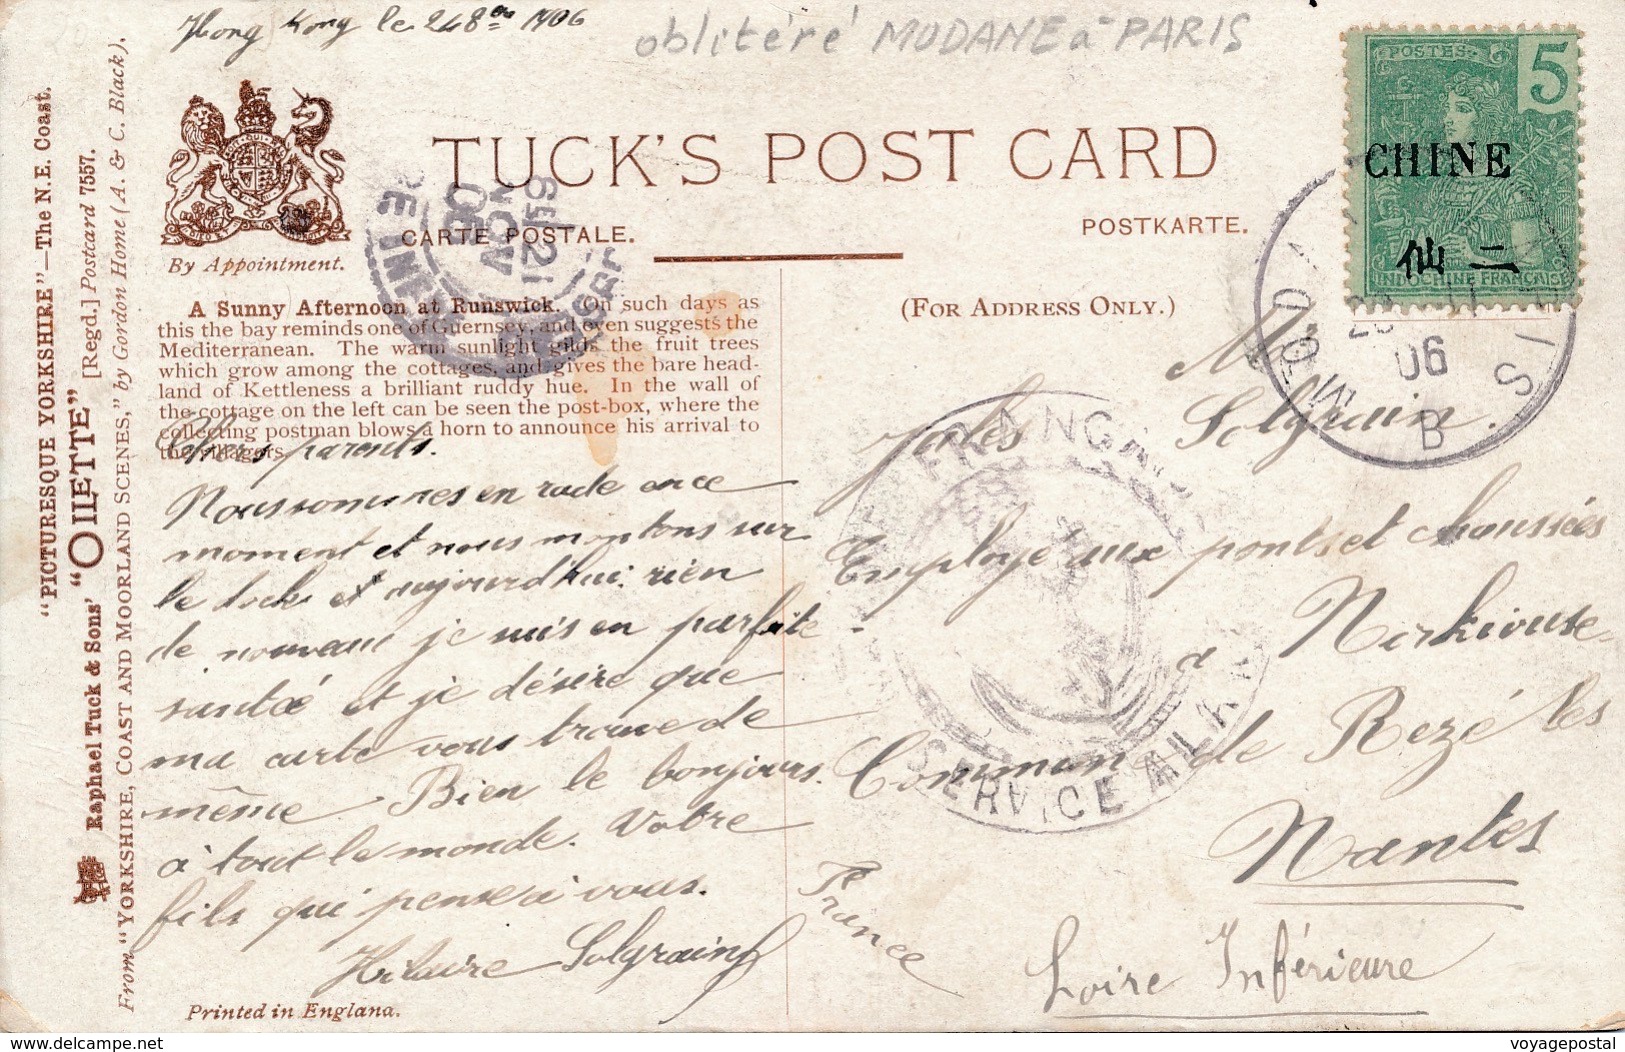 Hong Kong le 24 8bre 1906
oblitéré MODANE à PARIS
POSTES
5
CHINE
仙 二
INDOCHINE FRANÇAISE
TUCK'S POST CARD
CARTE POSTALE.
POSTKARTE.
By Appointment.
(FOR ADDRESS ONLY.)
"PICTURESQUE YORKSHIRE"—The N.E. Coast.
Raphael Tuck & Sons' "OILETTE" [Regd.] Postcard 7557.
From "YORKSHIRE, COAST AND MOORLAND SCENES," by Gordon Home (A. & C. Black).
A Sunny Afternoon at Runswick. On such days as
this the bay reminds one of Guernsey, and even suggests the
Mediterranean. The warm sunlight gilds the fruit trees
which grow among the cottages, and gives the bare head-
land of Kettleness a brilliant ruddy hue. In the wall of
the cottage on the left can be seen the post-box, where the
collecting postman blows a horn to announce his arrival to
the villagers.
Chers parents.
Nous sommes en rade en ce
moment et nous montons sur
le dock et aujourd'hui. rien
de nouveau je suis en parfaite
santé et je désire que
ma carte vous trouve de
même Bien le bonjours.
à tout le monde. Votre
fils qui pense à vous.
Hilaire Solgrain
Printed in England.
Mr
Jules Solgrain.
Employé aux ponts et chaussées
a
Commun de Rezé les
Nantes
France
Loire Inférieure
6 5E
21
NOV
06
06
B
FRANÇAIS
SERVICE A LA
delcampe.net
voyagepostal